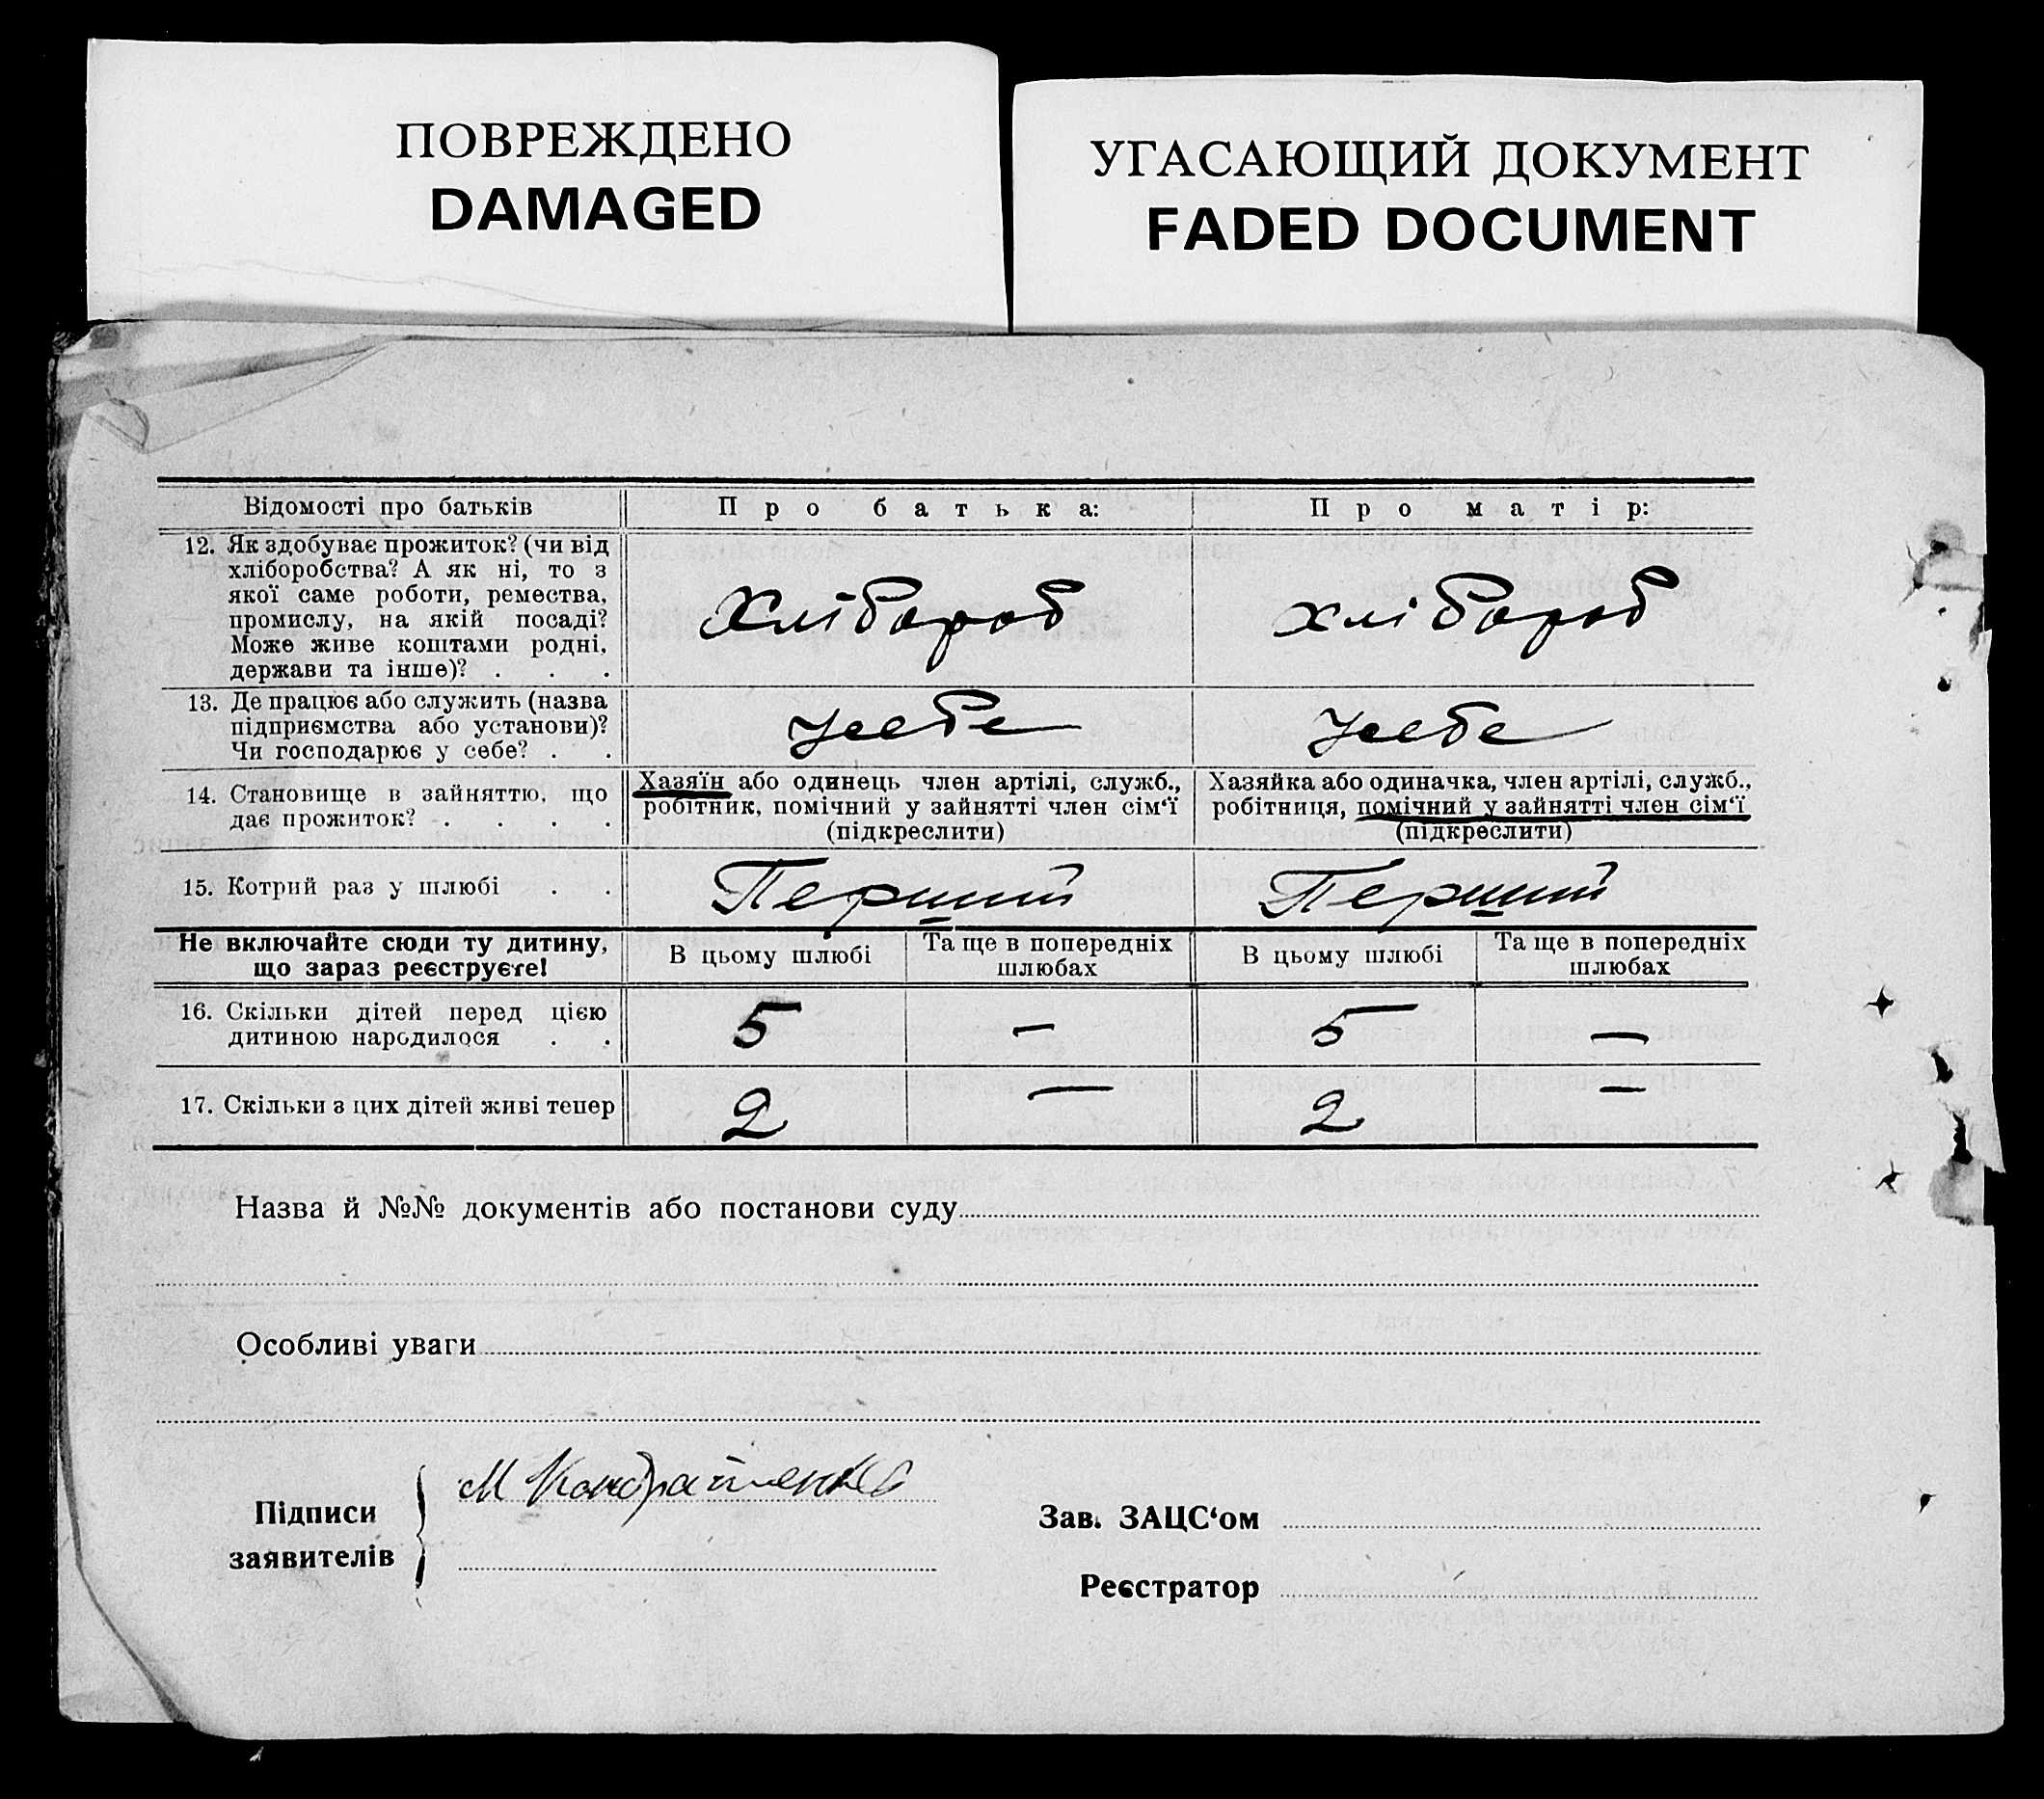 ПОВРЕЖДЕНО
DAMAGED
УГАСАЮЩИЙ ДОКУМЕНТ
FADED DOCUMENT
Відомості про батьків
Про батька:
Про матір:
12. Як здобуває прожиток? (чи від
хліборобства? А як ні, то з
якої саме роботи, ремества,
промислу, на якій посаді?
Може живе коштами родні,
держави та інше)? . . .
Хлібороб
хлібороб
13. Де працює або служить (назва
підприємства або установи)?
Чи господарює у себе? . .
Усебе
Усебе
14. Становище в зайняттю, що
дає прожиток? . . . .
Хазяїн або одинець член артілі, служб.,
робітник, помічний у зайнятті член сім‘ї
(підкреслити)
Хазяйка або одиначка, член артілі, служб.,
робітниця, помічний у зайнятті член сім‘ї
(підкреслити)
15. Котрий раз у шлюбі . .
Перший
Перший
Не включайте сюди ту дитину,
що зараз реєструєте!
В цьому шлюбі
Та ще в попередніх
шлюбах
В цьому шлюбі
Та ще в попередніх
шлюбах
16. Скільки дітей перед цією
дитиною народилося . .
5
—
5
—
17. Скільки з цих дітей живі тепер
2
—
2
—
Назва й №№ документів або постанови суду
Особливі уваги
Підписи
заявителів
М Кондратенко
Зав. ЗАЦС‘ом
Реєстратор